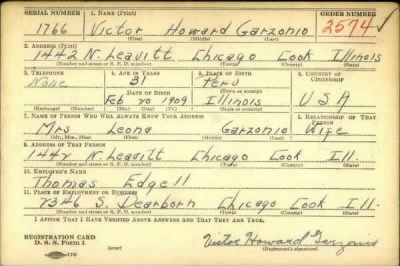 SERIAL NUMBER 1. NAME (Print) ORDER NUMBER
1766 Victor Howard Garzonio 2574
(First) (Middle) (Last)
2. ADDRESS (Print)
1442 N. Leavitt Chicago Cook Illinois
(Number and street or R. F. D. number) (Town) (County) (State)
3. TELEPHONE 4. AGE IN YEARS 5. PLACE OF BIRTH 6. COUNTRY OF CITIZENSHIP
None 31 Peru
DATE OF BIRTH (Town or county)
Feb 1909 Illinois U S A
(Exchange) (Number) (Mo.) (Day) (Yr.) (State or country)
7. NAME OF PERSON WHO WILL ALWAYS KNOW YOUR ADDRESS 8. RELATIONSHIP OF THAT PERSON
Mrs Leona Garzonio Wife
(Mr., Mrs., Miss) (First) (Middle) (Last)
9. ADDRESS OF THAT PERSON
1442 N. Leavitt Chicago Cook Ill.
(Number and street or R. F. D. number) (Town) (County) (State)
10. EMPLOYER'S NAME
Thomas Edgell
11. PLACE OF EMPLOYMENT OR BUSINESS
7346 S. Dearborn Chicago Cook Ill.
(Number and street or R. F. D. number) (Town) (County) (State)
I AFFIRM THAT I HAVE VERIFIED ABOVE ANSWERS AND THAT THEY ARE TRUE.
REGISTRATION CARD
D. S. S. Form 1 (over) Victor Howard Garzonio
(Registrant's signature)